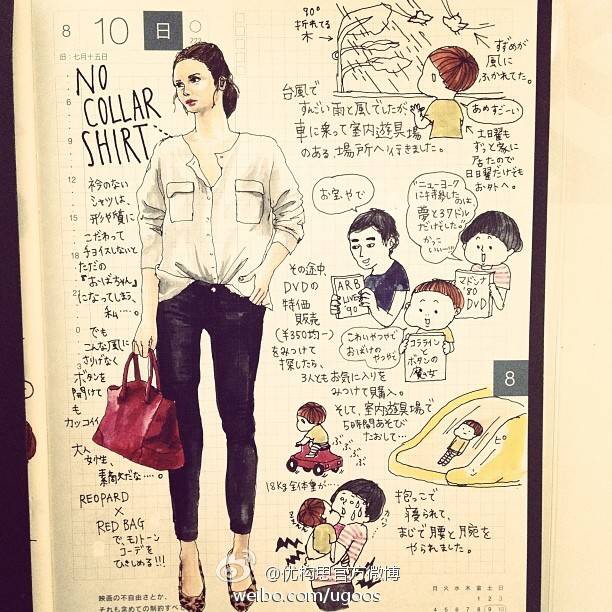 8
10
日
旧:七月十五日
90°
折れてる
木→
すずめが
風に
ふかれてた。
NO
COLLAR
SHIRT
台風で
すんごい雨と風でしたが、
車に乗って室内遊具場
のある、場所へ行きました。
あめすごーい
土日曜も
ずっと家に
居たので
日日曜だけでも
お外へ。
衿のない
シャツは、
形や質に
こだわって
チョイスしないと
ただの
『おばちゃん』
になってしまう、
私….。
でも
こんな風に
さりげなく
ボタンを
開けて
も
カッコイイ
大人
女性、
素敵だな….。
REOPARD
×
RED BAG
で、モノトーン
コーデを
ひきしめる!!!
お宝やで
"ニューヨーク
夢と37ドル
だけでした。"
かっこ
いいー!!!
ARB
LIVE
'90
マドンナ
'80
DVD
その途中、
DVDの
特価
販売
(¥350均一)
をみつけて
探したら、
3人ともお気に入りを
みつけて購入。
こわいやつやで
おばけのやつで
コララインと
ボタンの
魔女
そして、室内遊具場で
5時間あそび
たおして…
8
ぶ、ぶ、ぶ、
ピ
18kg全体重が….
抱っこで
寝られて、
まじで腰と腕を
やられました。
映画の不自由さとか、
それも含めての制約すべ
月 火 水 木 金 土 日
@优构思官方微博
weibo.com/ugoos